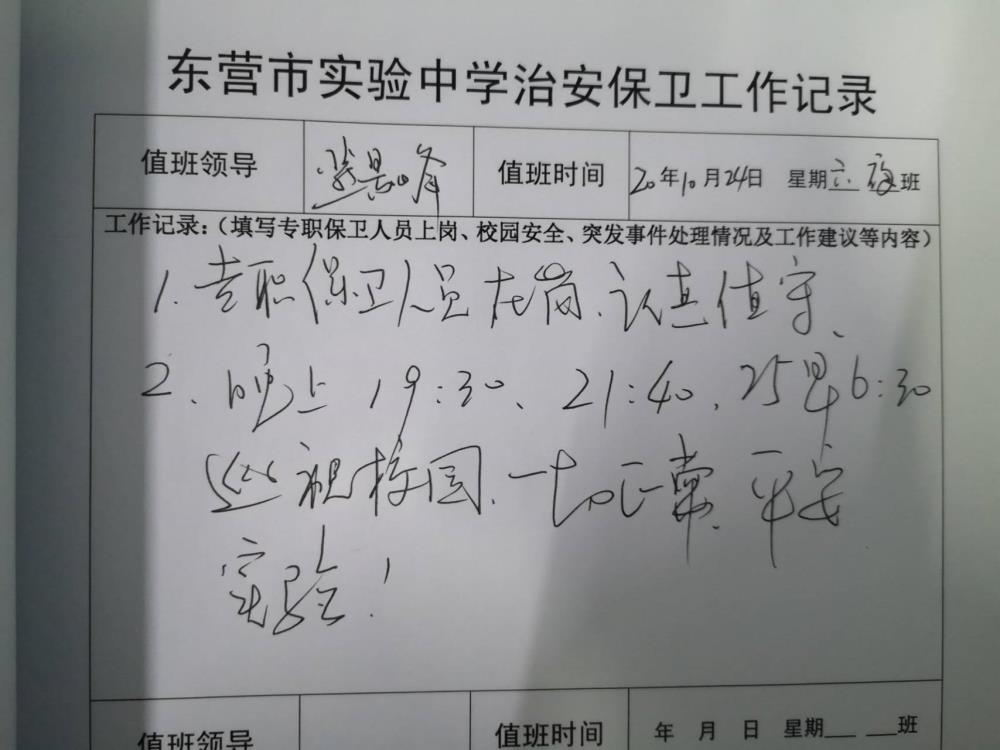 东营市实验中学治安保卫工作记录
值班领导 景峰 值班时间 20年10月24日 星期六 夜班
工作记录:(填写专职保卫人员上岗、校园安全、突发事件处理情况及工作建议等内容)
1. 专职保卫人员在岗、认真值守、
2、晚上19:30、21:40、25早6:30
巡视校园、一切正常、平安
实验!
值班领导 值班时间 年 月 日 星期 班